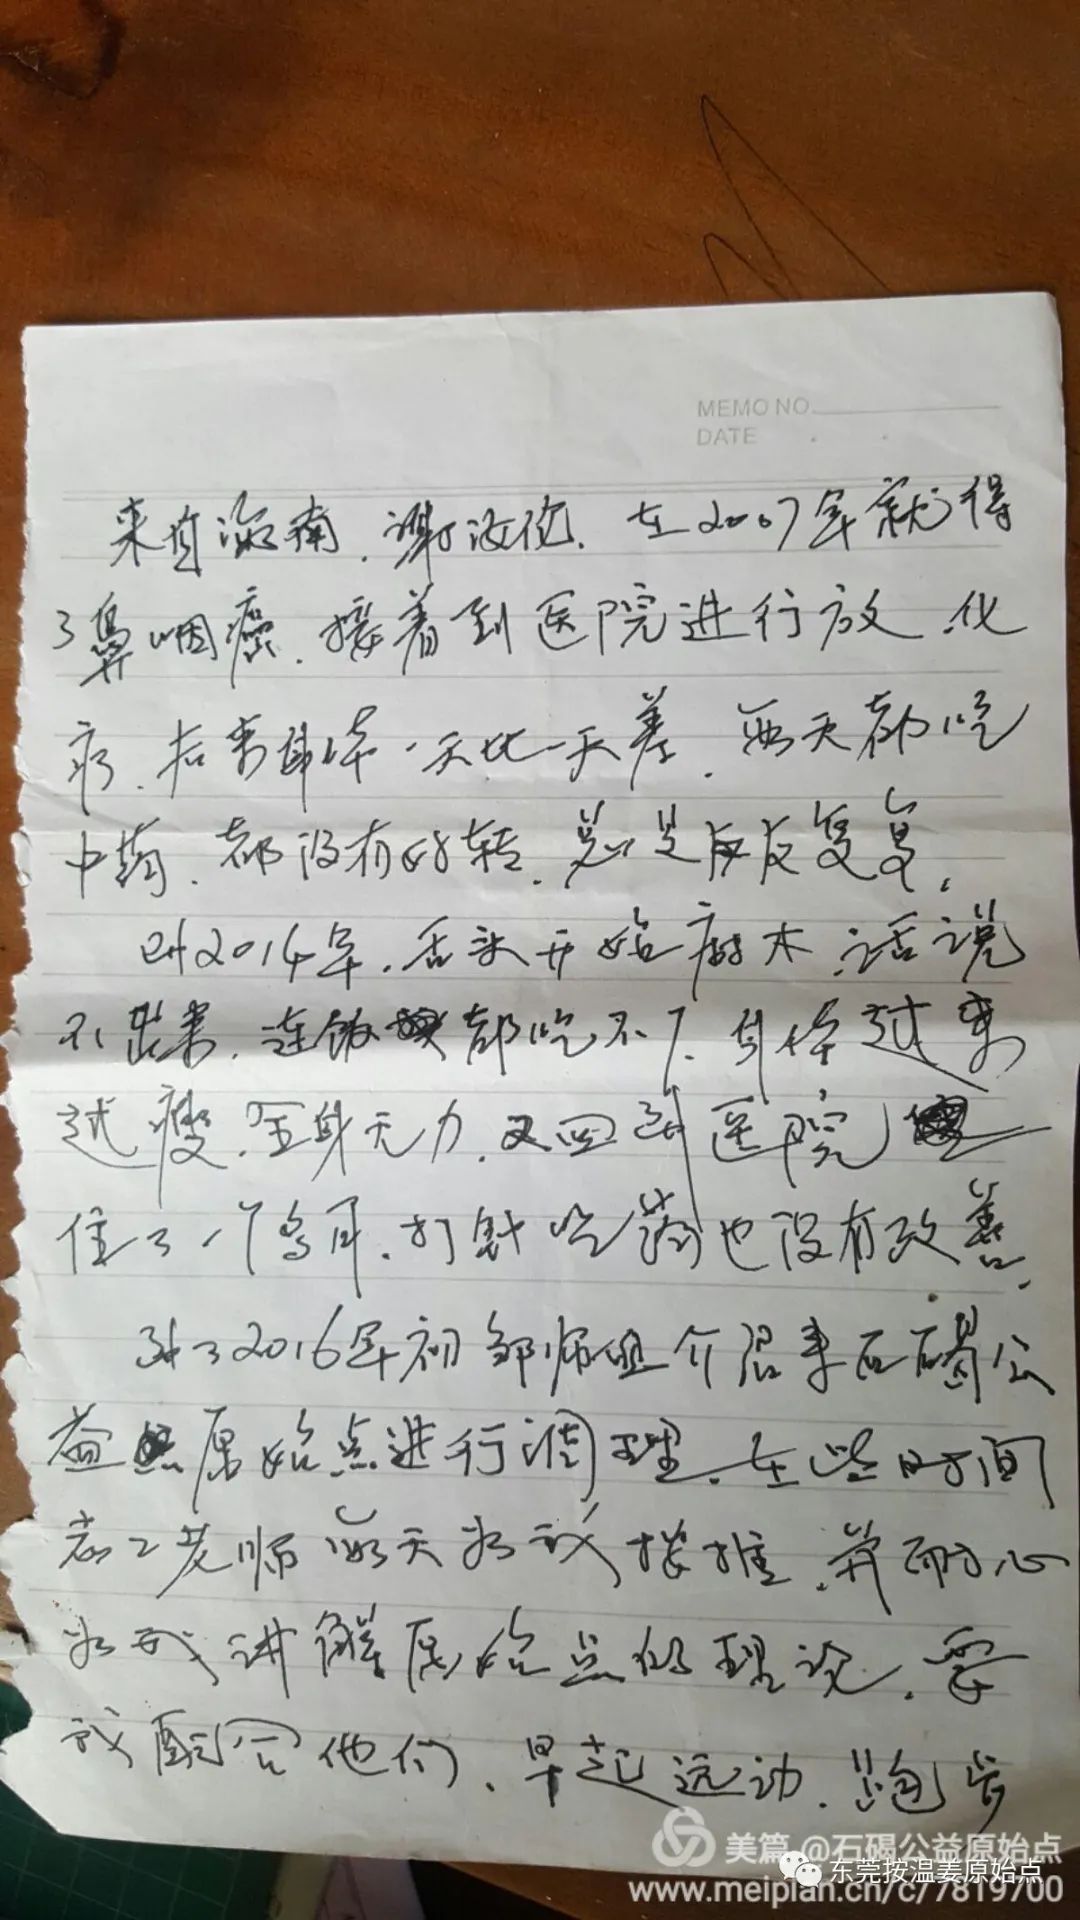 MEMO NO.
DATE
来自海南、谢汝. 在2007年就得
了鼻咽癌、接着到医院进行放、化
疗、后来身体一天比一天差、每天都吃
中药、都没有好转、总是反反复复,
时2014年、舌头开始麻木、话说
不出来、连饭都吃不下、身体越来
越瘦、全身无力、又回到医院
住了一个多月、打针吃药也没有改善、
到了2016年初邹师姐介绍来石碣公
益原始点进行调理、在这些时间
志工老师每天为我按推、并耐心
为我讲解原始点的理论、要
我配合他们、早起运动、跑步
美篇 @石碣公益原始点
东莞按温姜原始点
www.meipian.cn/c/7819700